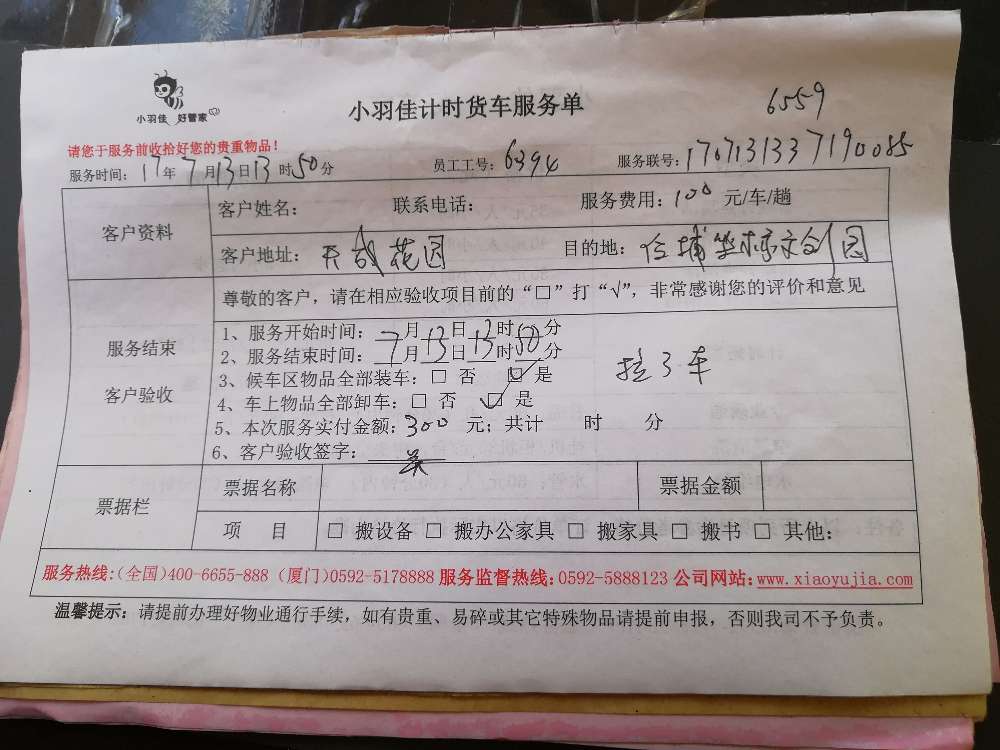 小羽佳 好管家
小羽佳计时货车服务单
6559
请您于服务前收拾好您的贵重物品！
服务时间：17年7月13日13时50分 员工工号：6394 服务联号：1707131337190085
客户资料
客户姓名： 联系电话： 服务费用：100 元/车/趟
客户地址：天成花园 目的地：
尊敬的客户，请在相应验收项目前的“□”打“√”，非常感谢您的评价和意见
服务结束
客户验收
1、服务开始时间：7月13日13时50分
2、服务结束时间：7月13日13时50分
3、候车区物品全部装车：□ 否 □ 是
4、车上物品全部卸车：□ 否 □ 是
5、本次服务实付金额：300 元；共计 时 分
6、客户验收签字：
拉3车
票据栏
票据名称 票据金额
项 目 □ 搬设备 □ 搬办公家具 □ 搬家具 □ 搬书 □ 其他：
服务热线：(全国)400-6655-888 (厦门)0592-5178888 服务监督热线：0592-5888123 公司网站：www.xiaoyujia.com
温馨提示：请提前办理好物业通行手续，如有贵重、易碎或其它特殊物品请提前申报，否则我司不予负责。